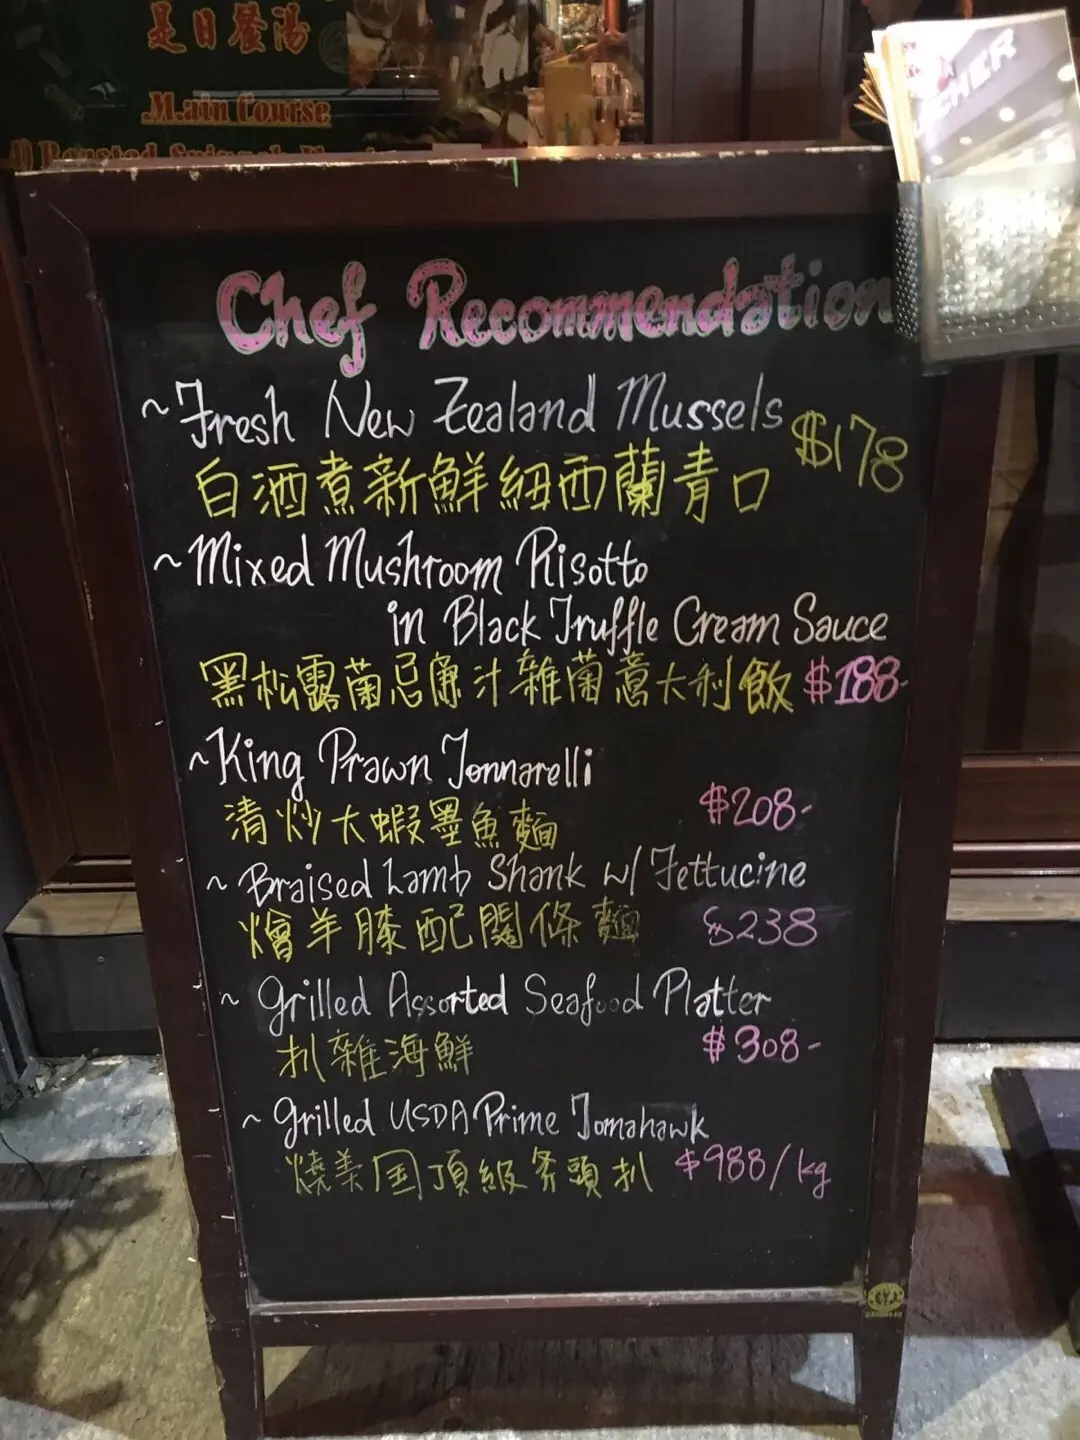 是日餐湯
Main Course
Roasted
CHER
Chef Recommendation
~Fresh New Zealand Mussels $178
白酒煮新鮮紐西蘭青口
~Mixed Mushroom Risotto
in Black Truffle Cream Sauce
黑松露菌忌廉汁雜菌意大利飯 $188-
~King Prawn Tonnarelli
清炒大蝦墨魚麵 $208-
~Braised Lamb Shank w/ Fettucine
燴羊膝配闊條麵 $238
~Grilled Assorted Seafood Platter
扒雜海鮮 $308-
~Grilled USDA Prime Tomahawk
燒美国頂級斧頭扒 $988/kg